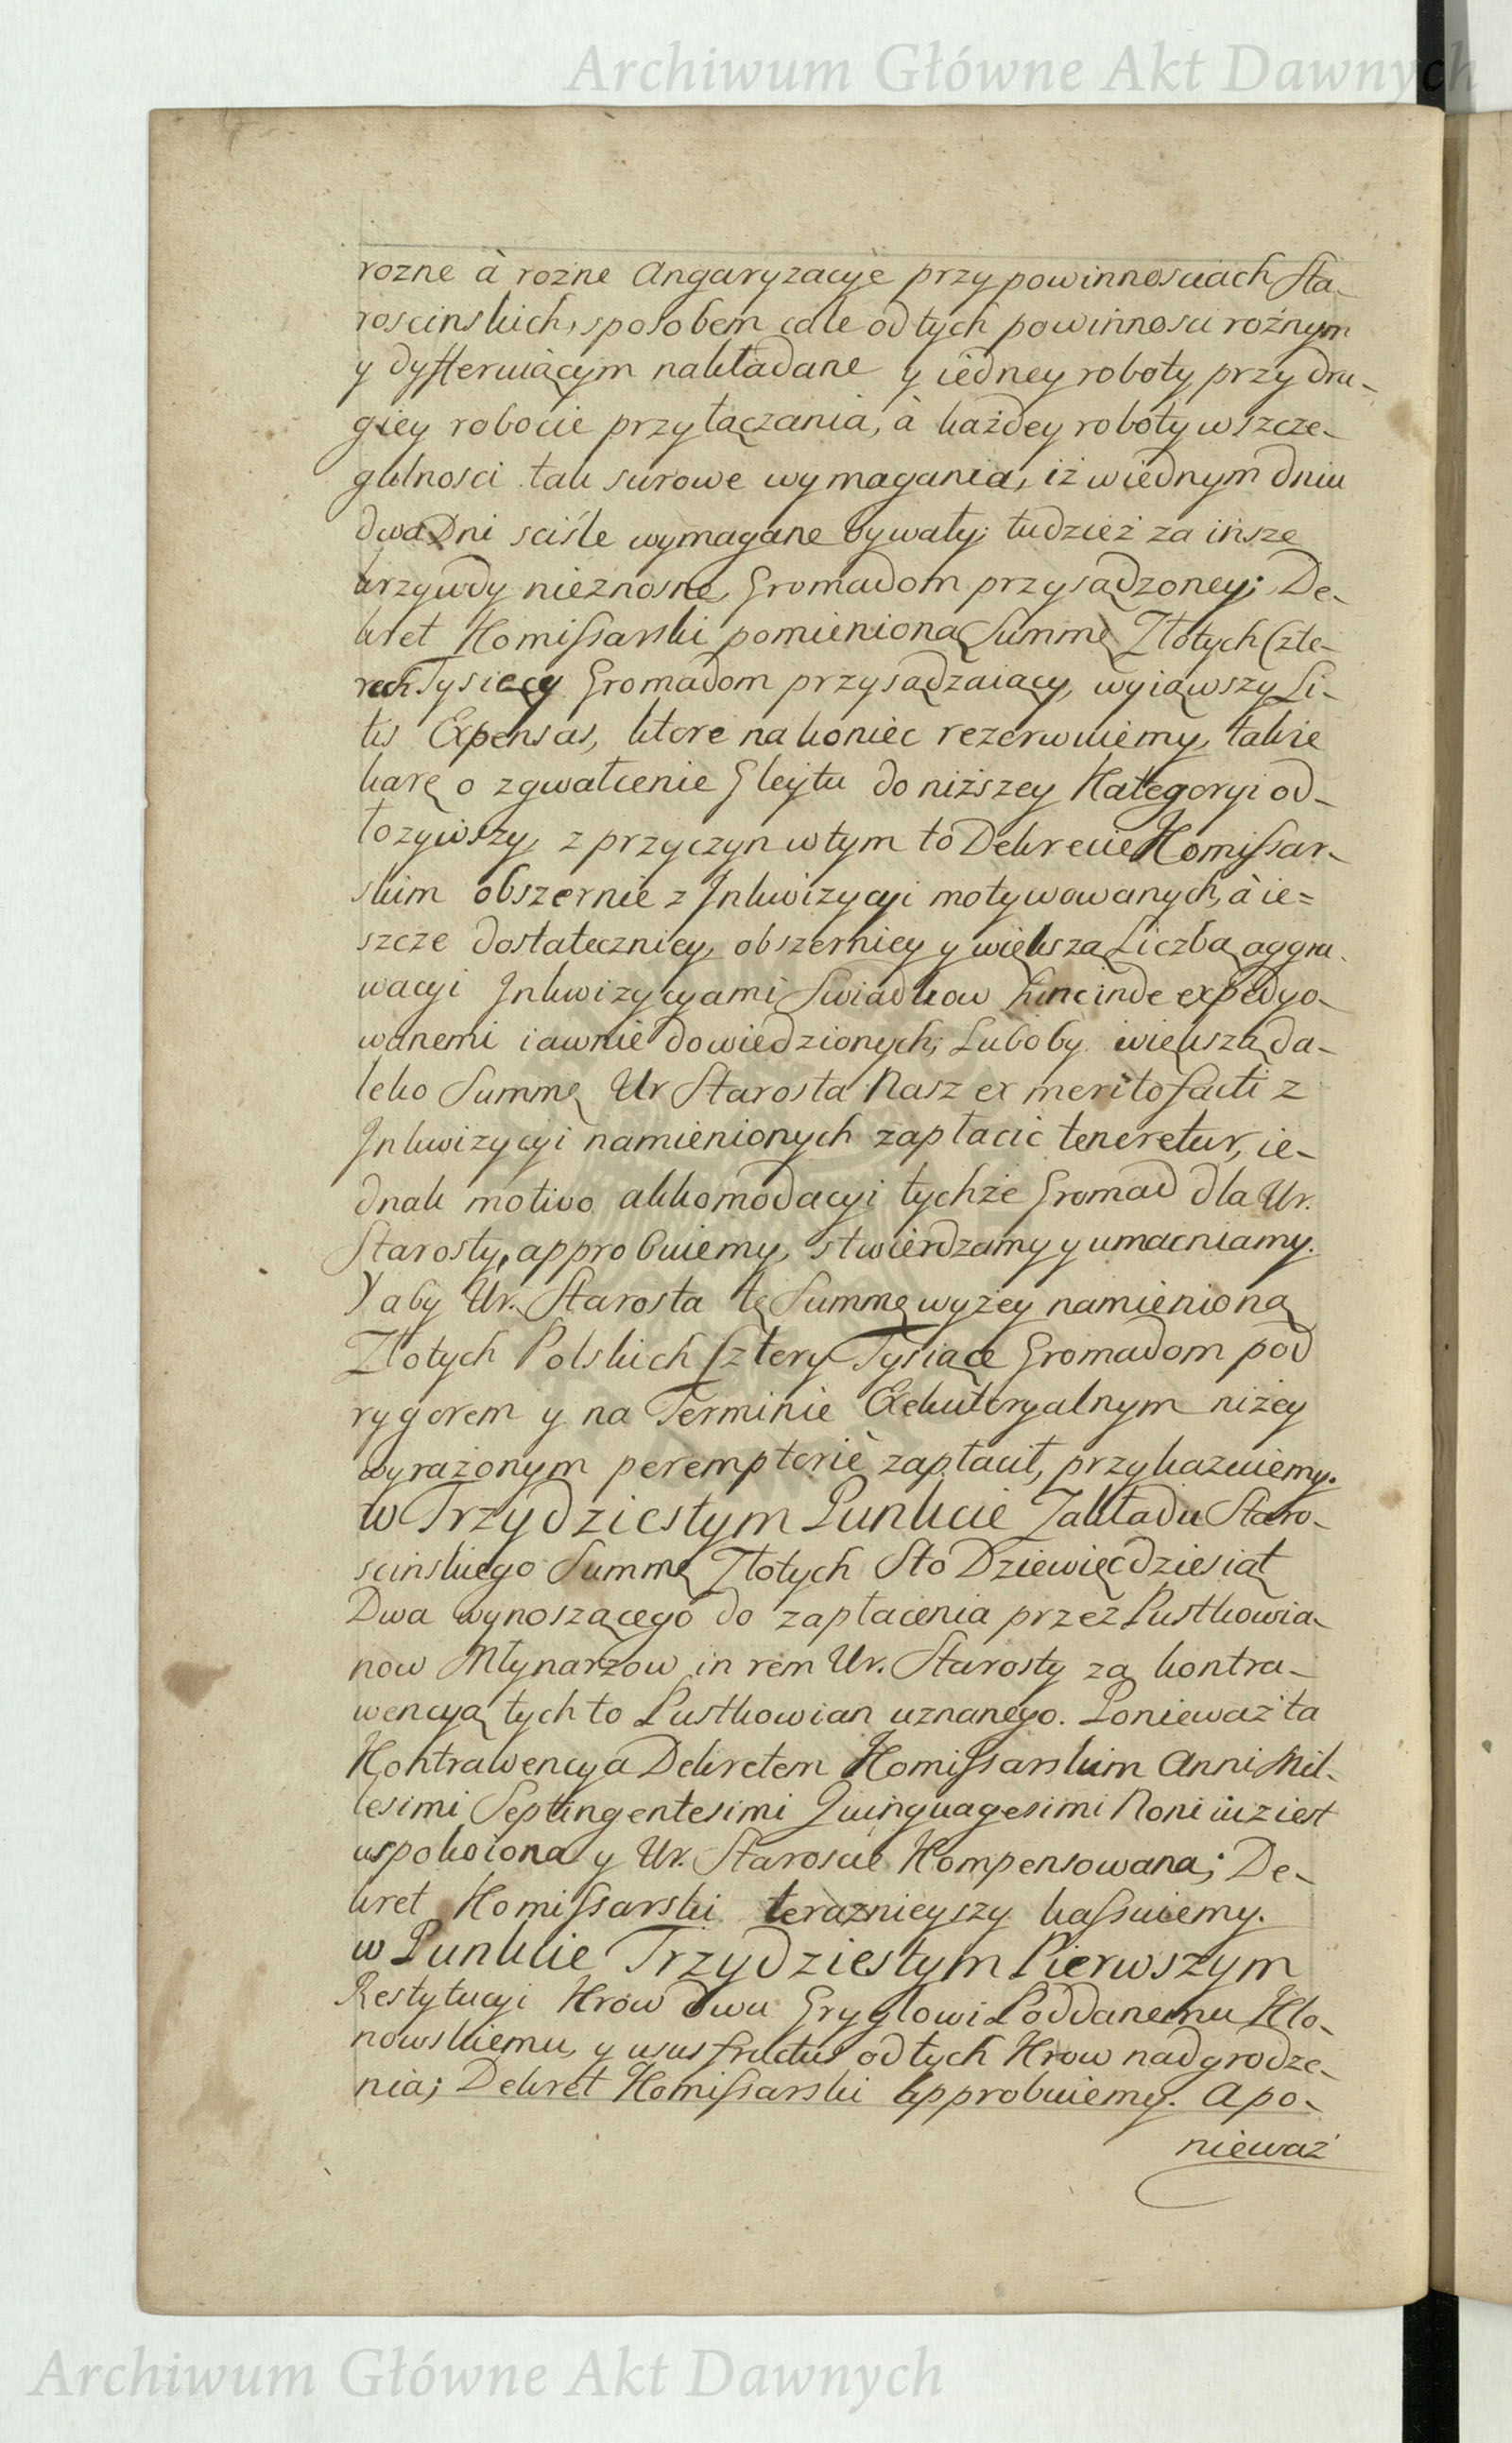 Archiwum Główne Akt Dawnych
rozne à rożne Angaryzacye przy powinnosciach Sta-
roscinskich, sposobem cale od tych powinnosci rożnym
y dyfferuiącym nakładane y iedney roboty przy dru-
giey robocie przyłączania, à każdey roboty w szcze-
gulnosci tak surowe wymagania, iż w iednym dniu
dwa Dni sciśle wymagane bywały; tudzież za insze
krzywdy nieznosne, Gromadom przysądzoney; De-
kret Kommissarski pomienioną Summę Złotych Czte-
rech Tysięcy Gromadom przysądzaiący, wyiąwszy Li-
tis Expensas, ktore na koniec rezerwuiemy, także
karę o zgwałcenie Gleytu do niższey Kategoryi od-
łożywszy, z przyczyn w tym to Dekrecie Komissar-
skim obszernie z Inkwizycyi motywowanych, à ie=
szcze dostateczniey, obszerniey y większą Liczbą aggra-
wacyi Inkwizycyami Swiadkow hincinde expedyo-
wanemi iawnie dowiedzionych; Luboby większą da-
leko Summę Ur Starosta Nasz ex merito facti z
Inkwizycyi namienionych zapłacić teneretur, ie-
dnak motivo akkomodacyi tychże Gromad dla Ur.
Starosty, approbuiemy, stwierdzamy y umacniamy.
Y aby Ur. Starosta tę Summę wyżey namienioną
Złotych Polskich Cztery Tysiące Gromadom pod
rygorem y na Terminie Exekutoryalnym niżey
wyrażonym peremptoriè zapłacił, przykazuiemy.
w Trzydziestym Punkcie Zakładu Staro-
scinskiego Summę Złotych Sto Dziewięćdziesiąt
Dwa wynoszącego do zapłacenia przez Pustkowia-
now Młynarzow in rem Ur. Starosty za kontra-
wencyą tych to Pustkowian uznanego. Ponieważ ta
Kontrawencya Dekretem Komissarskim Anni Mil-
lesimi Septingentesimi Quinquagesimi Noni iuż iest
uspokoiona y Ur. Staroscie Kompensowana; De-
kret Komissarski teraznieyszy kassuiemy.
w Punkcie Trzydziestym Pierwszym
Restytucyi Krow dwu Gryglowi Poddanemu Klo-
nowskiemu, y ususfructus od tych Krow nadgrodze-
nia; Dekret Komissarski approbuiemy. A po-
nieważ
Archiwum Główne Akt Dawnych